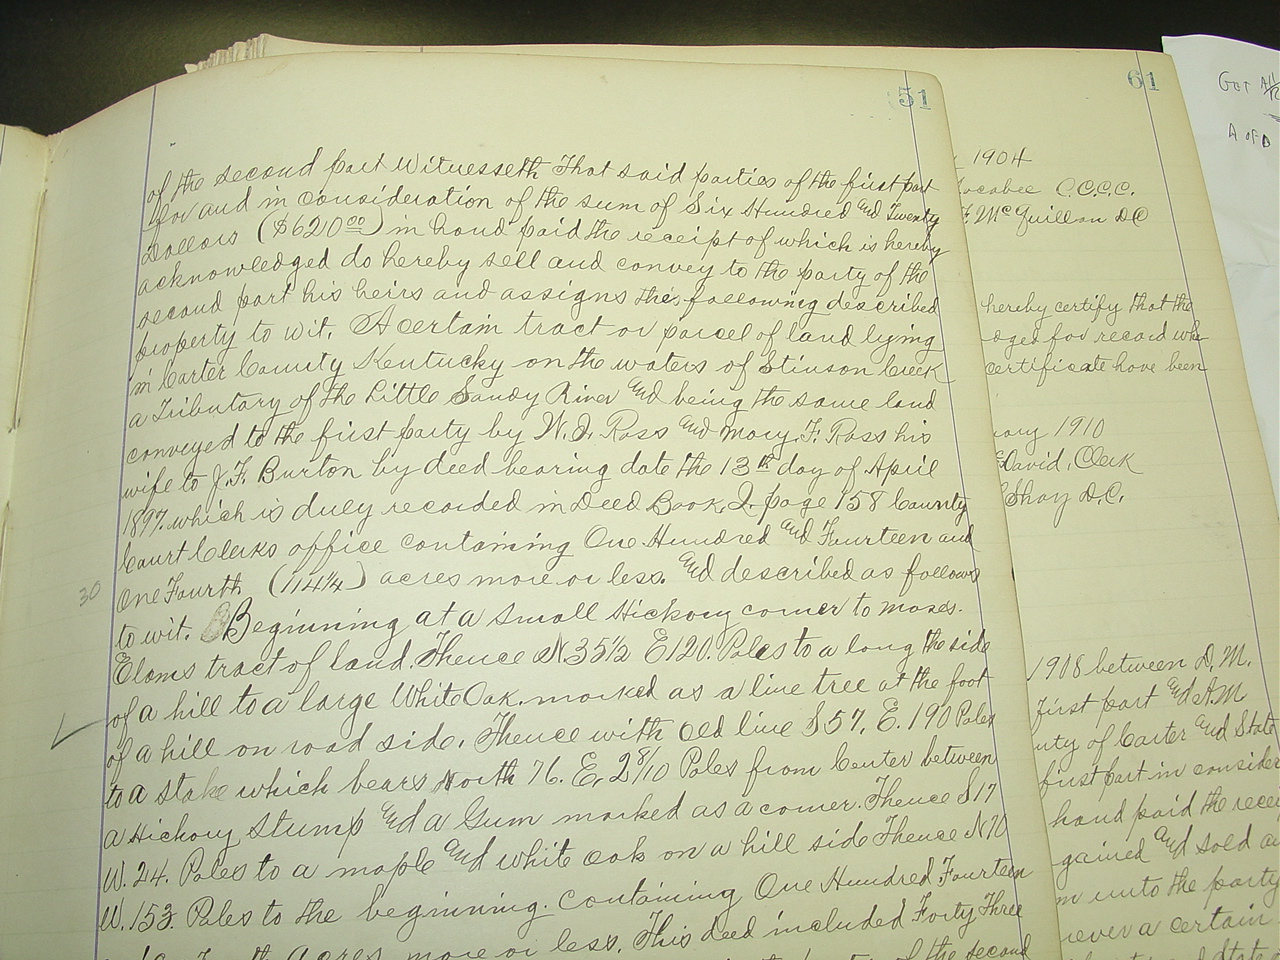 51
of the second part Witnesseth That said parties of the first part
for and in consideration of the sum of Six Hundred and Twenty
Dollars ($620.00) in hand paid the receipt of which is hereby
acknowledged do hereby sell and convey to the party of the
second part his heirs and assigns the following described
property to wit. A certain tract or parcel of land lying
in Carter County Kentucky on the waters of Stinson Creek
a Tributary of the Little Sandy River and being the same land
conveyed to the first party by W. J. Ross and Mary F. Ross his
wife to J. F. Burton by deed bearing date the 13th day of April
1897. which is duly recorded in Deed Book. page 158 County
Court Clerks office containing One Hundred and Fourteen and
30
One Fourth (114 1/4) acres more or less. and described as follows
to wit. Beginning at a small Hickory corner to Moses.
Elams tract of land. Thence N 35 1/2 E 120. Poles to a long the side
of a hill to a large White Oak. marked as a line tree at the foot
of a hill on road side. Thence with old line S 57. E. 190 Poles
to a stake which bears North 76. E. 2 8/10 Poles from Center between
a Hickory Stump and a Gum marked as a corner. Thence S 17
W. 24. Poles to a maple and white oak on a hill side Thence N 70
W. 153. Poles to the beginning. containing One Hundred Fourteen
Fourth Acres more or less. This deed included Forty Three
of the second
61
1904
C.C.C.C.
McGuillan DC
hereby certify that the
oged for record whe
certificate have been
1910
David, Clerk
Shay D.C.
1908 between D. M.
first part and A. M
nty of Carter and State
first part in consider
hand paid the recei
gained and sold a
m unto the party
rever a certain
State
Get All
A of D